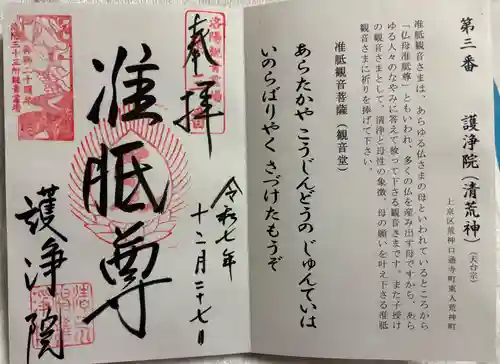 第三番　護浄院（清荒神）（天台宗）
上京区荒神口通寺町東入荒神町
准胝観音さまは、あらゆる仏さまの母といわれているところから
「仏母准胝尊」ともいわれ、多くの仏を産み出す母ですから、あら
ゆる人々のなやみに答えて救って下さる観音さまです。また子授け
の観音さまとして、清浄と母性の象徴、母の願いを叶え下さる准胝
観音さまに祈りを捧げて下さい。
准胝観音菩薩（観音堂）
あらたかや　こうじんどうの　じゅんていは
いのらばりやく　さづけたもうぞ
奉拝
洛陽観音霊場
令和七年
十二月二十七日
准胝尊
護浄院